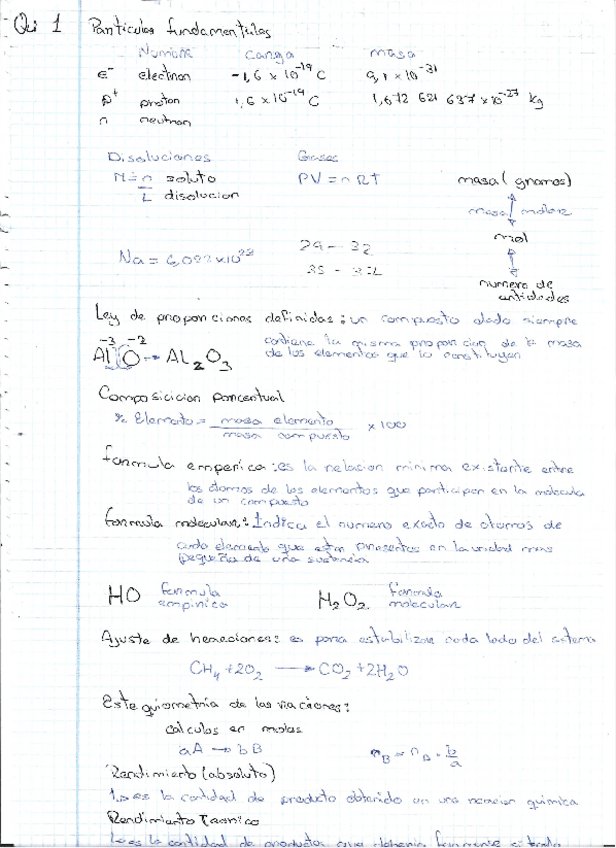 Qui 1 Particulas fundamentales
Nombre carga masa
e⁻ electron -1,6 x 10⁻¹⁹ C 9,1 x 10⁻³¹
p⁺ proton 1,6 x 10⁻¹⁹ C 1,672 621 637 x 10⁻²⁷ kg
n neutron
Disoluciones Gases
M = n soluto PV = nRT masa (gramos)
L disolucion
masa molar
mol
Na = 6,022 x 10²³ 29 - 32
numero de
entidades
Ley de proporciones definidas: un compuesto dado siempre
contiene la misma proporcion de masa
de los elementos que lo constituyen
-3 -2
Al O → Al₂O₃
Composicion porcentual
% Elemento = masa elemento / masa compuesto x 100
formula emperica: es la relacion minima existente entre
los atomos de los elementos que participan en la molecula
de un compuesto
formula molecular: Indica el numero exacto de atomos de
cada elemento que estan presentes en la unidad mas
pequeña de una sustancia
HO formula empirica H₂O₂ formula molecular
Ajuste de reacciones: es para estabilizar cada lado del sistema
CH₄ + 2O₂ → CO₂ + 2H₂O
Estequiometria de las reacciones:
calculos en moles
aA → bB
Rendimiento (absoluto)
es la cantidad de producto obtenido en una reaccion quimica
Rendimiento Teorico
es la cantidad de productos que